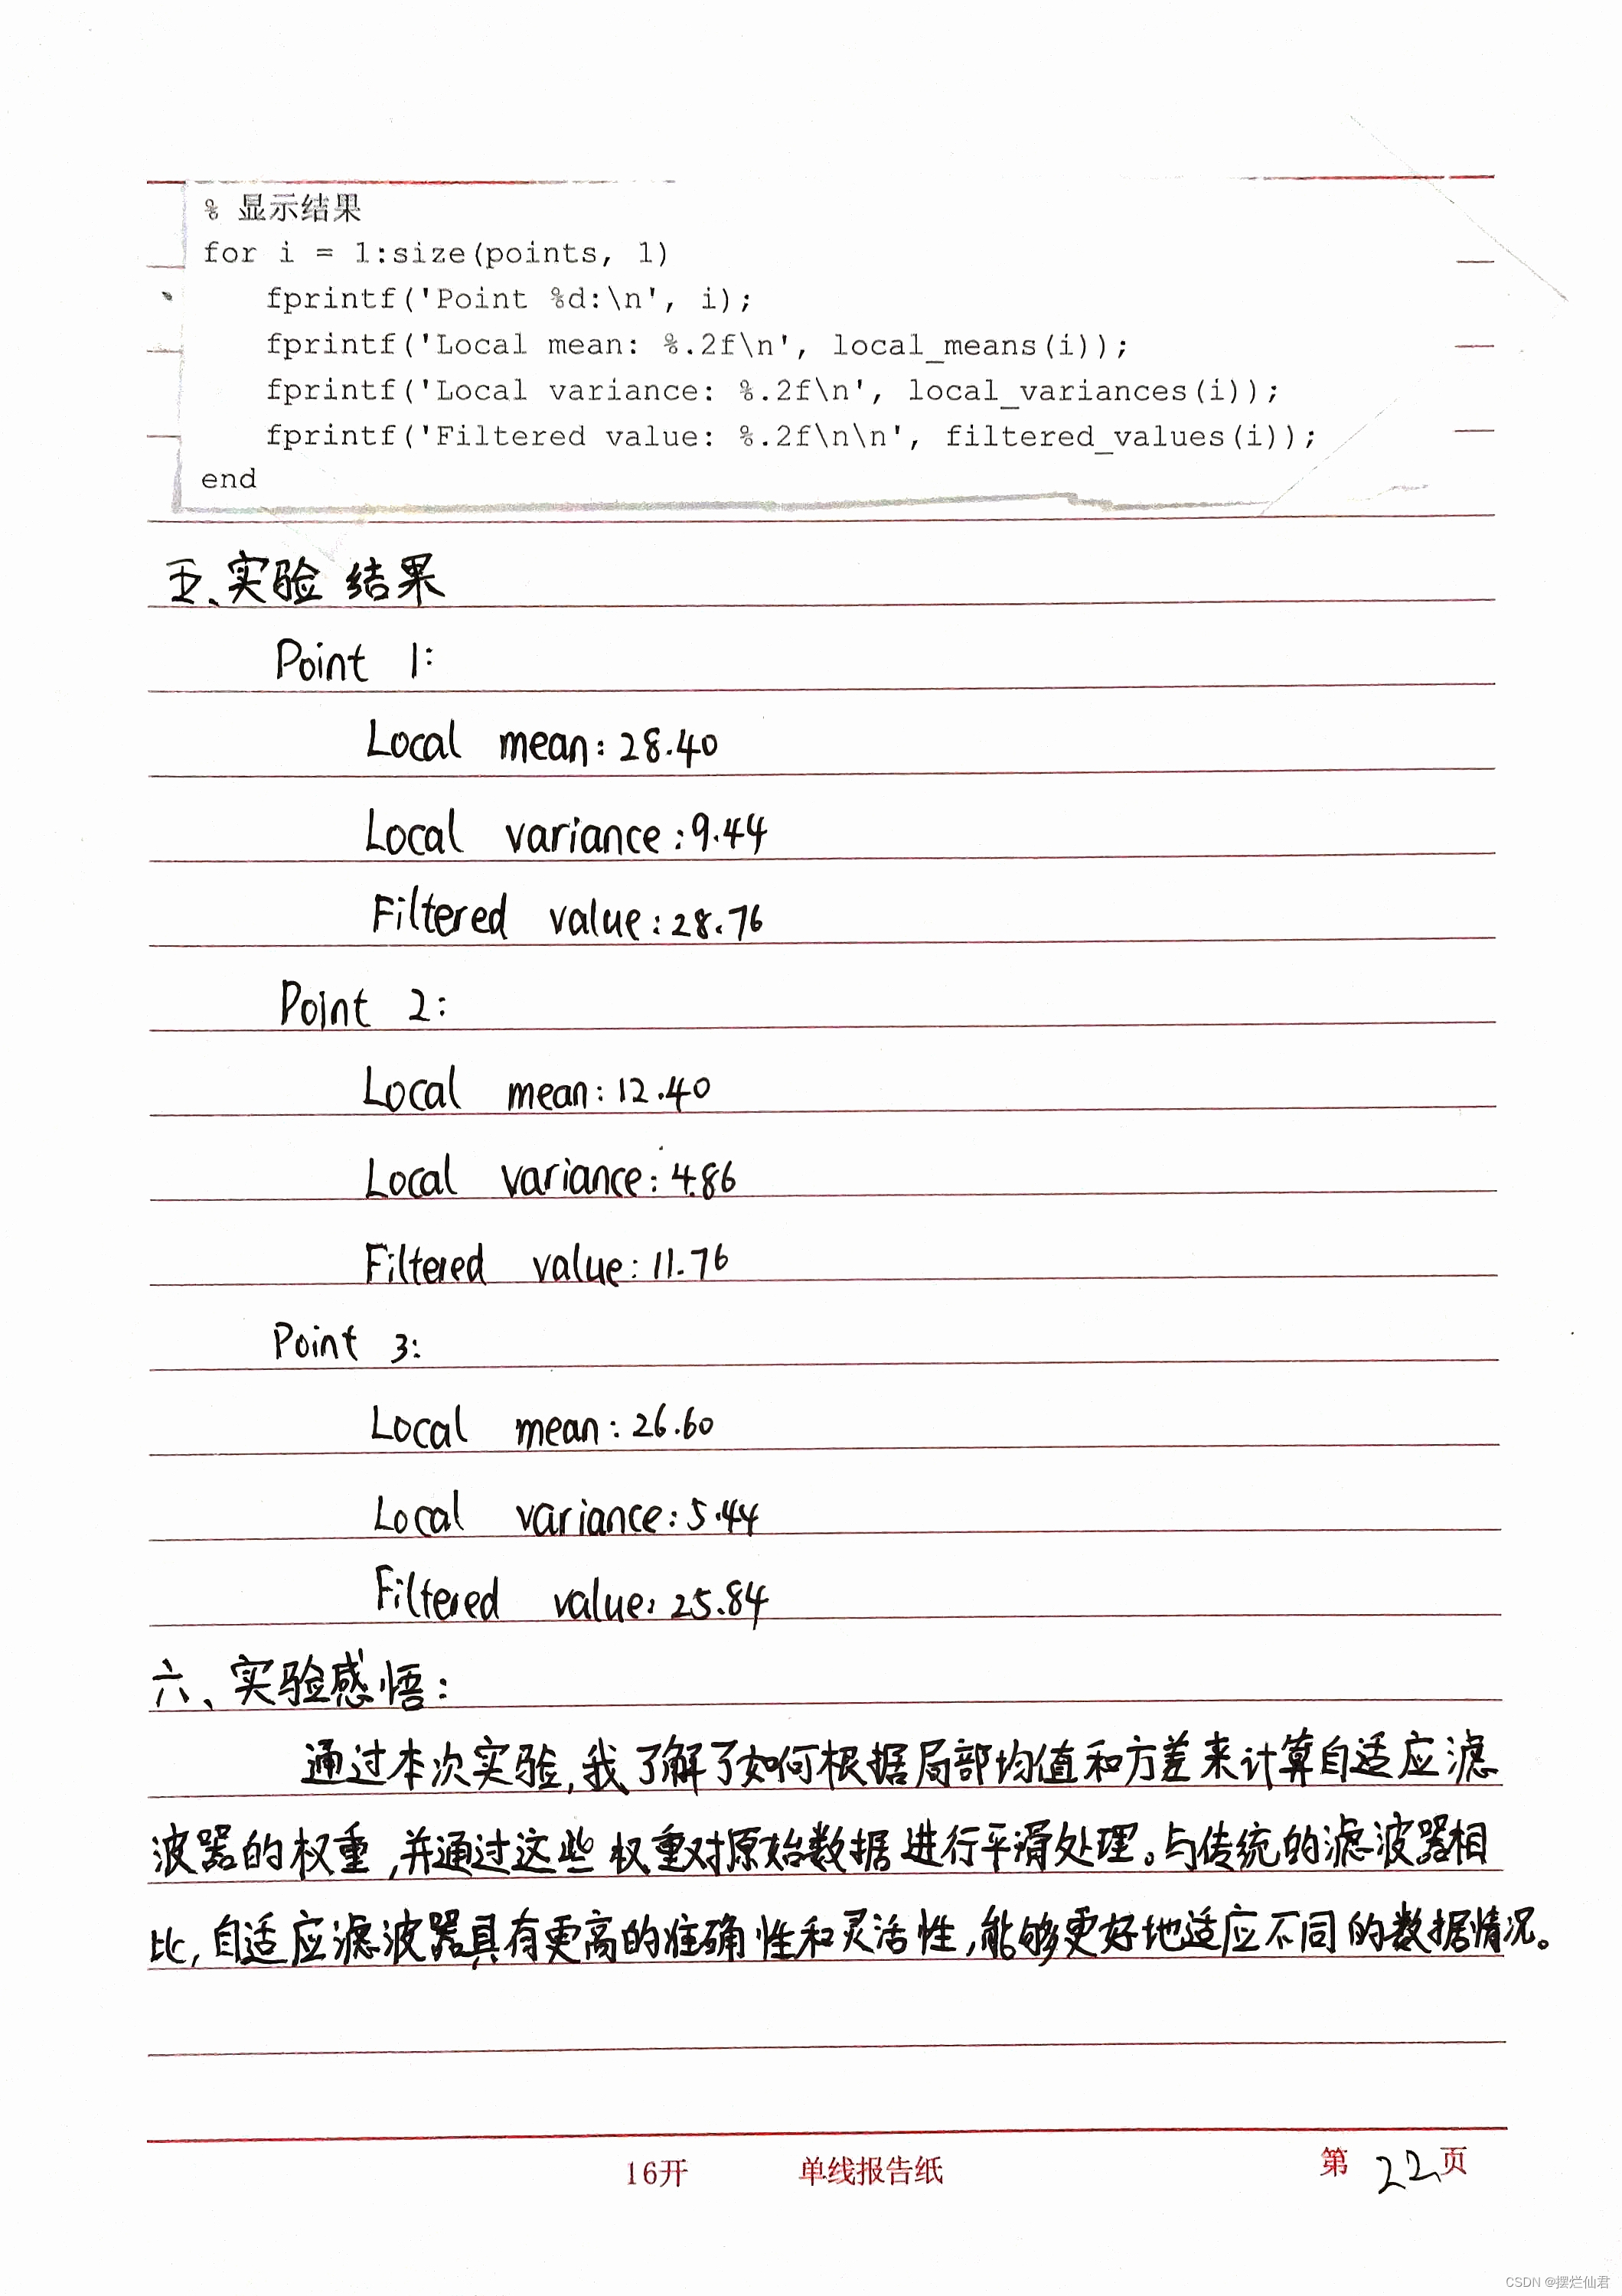 % 显示结果
for i = 1:size(points, 1)
fprintf('Point %d:\n', i);
fprintf('Local mean: %.2f\n', local_means(i));
fprintf('Local variance: %.2f\n', local_variances(i));
fprintf('Filtered value: %.2f\n\n', filtered_values(i));
end
五、实验结果
Point 1:
Local mean: 28.40
Local variance: 9.44
Filtered value: 28.76
Point 2:
Local mean: 12.40
Local variance: 4.86
Filtered value: 11.76
Point 3:
Local mean: 26.60
Local variance: 5.44
Filtered value: 25.84
六、实验感悟:
通过本次实验,我了解了如何根据局部均值和方差来计算自适应滤
波器的权重,并通过这些权重对原始数据进行平滑处理。与传统的滤波器相
比,自适应滤波器具有更高的准确性和灵活性,能够更好地适应不同的数据情况。
16开 单线报告纸 第 22 页
CSDN @摆烂仙君